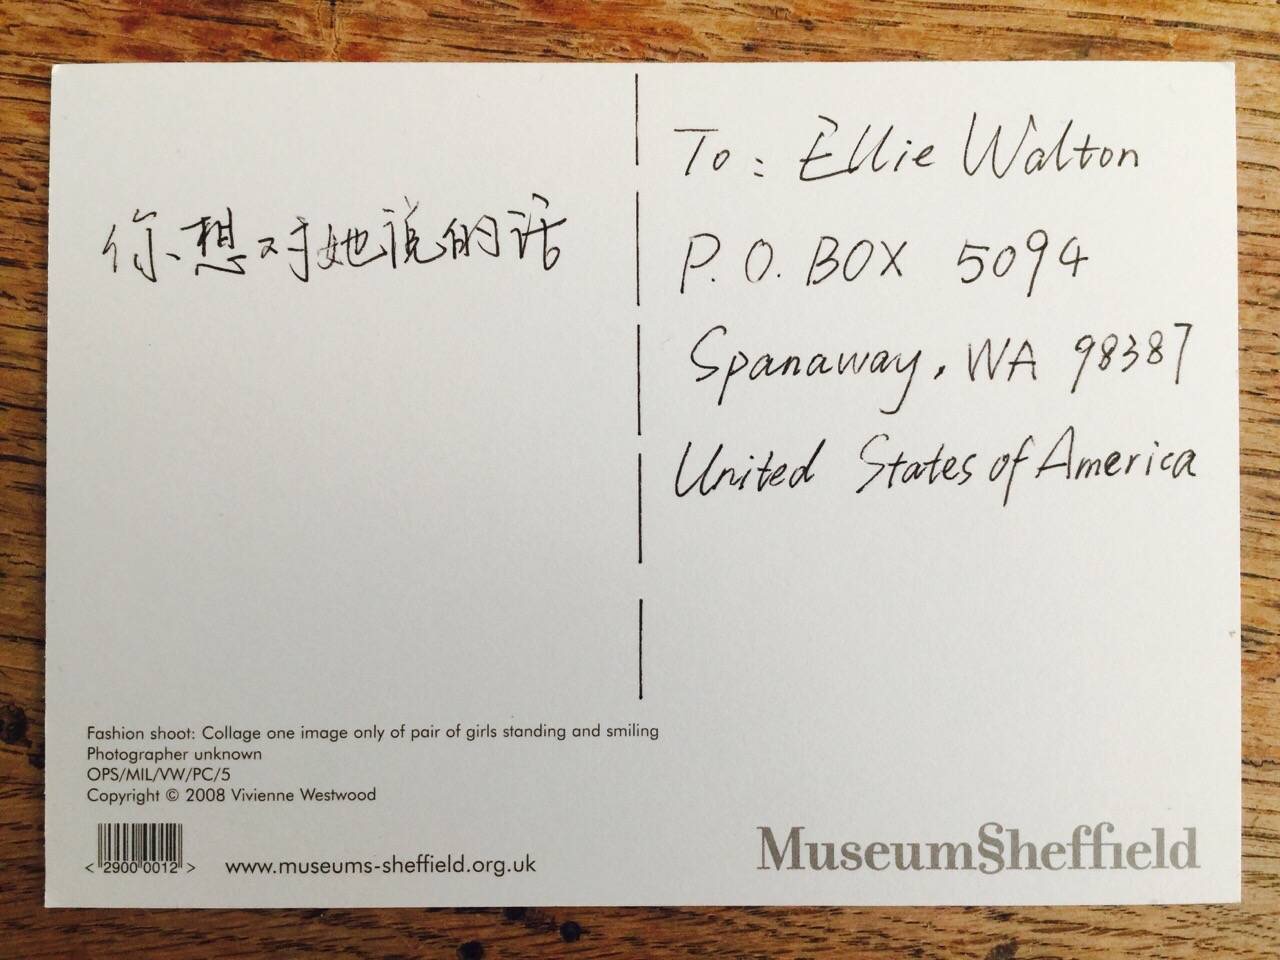 你想对她说的话
To: Ellie Walton
P.O. BOX 5094
Spanaway, WA 98387
United States of America
Fashion shoot: Collage one image only of pair of girls standing and smiling
Photographer unknown
OPS/MIL/VW/PC/5
Copyright © 2008 Vivienne Westwood
< 2900 0012 >
www.museums-sheffield.org.uk
Museum§heffield